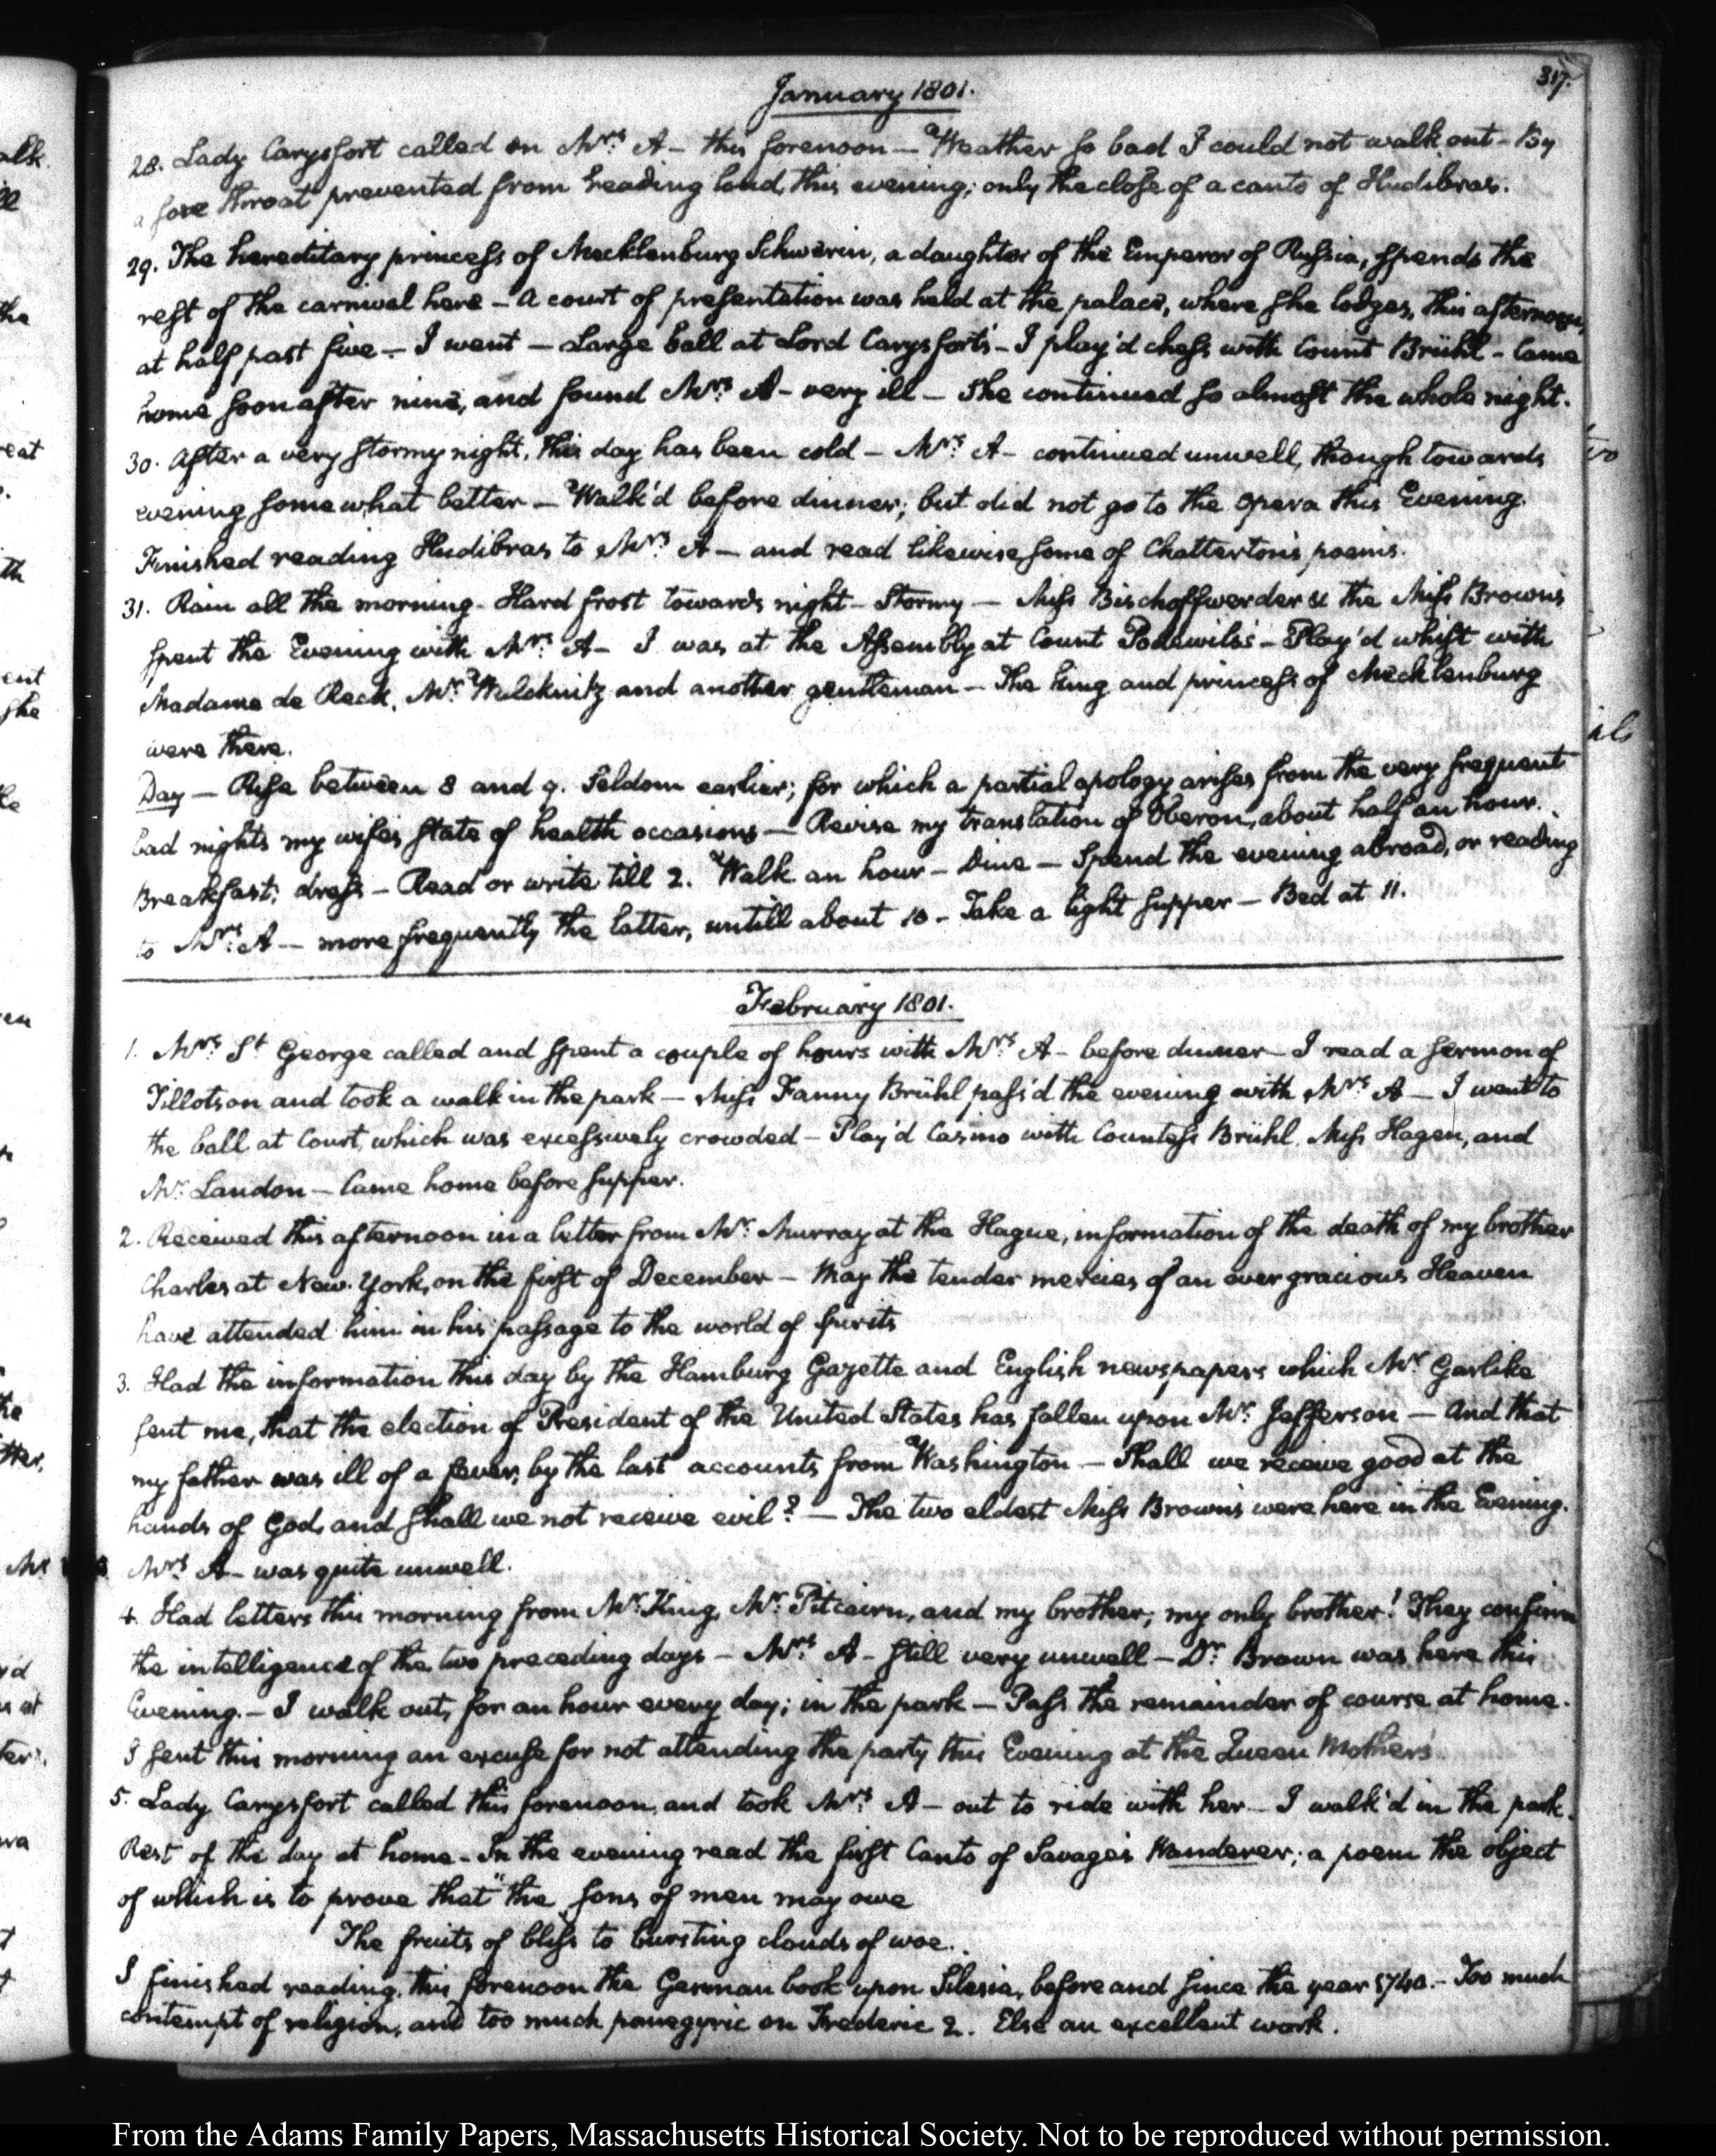 317.
January 1801.
28. Lady Carysfort called on Mrs: A— this forenoon — Weather so bad I could not walk out — By
a sore throat prevented from reading loud, this evening; only the close of a canto of Hudibras.
29. The hereditary princess of Mecklenburg Schwerin, a daughter of the Emperor of Russia, spends the
rest of the carnival here — A court of presentation was held at the palace, where she lodges, this afternoon,
at half past five — I went — Large ball at Lord Carysfort's — I play'd chess with Count Brühl — Came
home soon after nine, and found Mrs: A— very ill — She continued so almost the whole night.
30. After a very stormy night, this day has been cold — Mrs: A— continued unwell, though towards
evening somewhat better — Walk'd before dinner; but did not go to the opera this Evening.
Finished reading Hudibras to Mrs: A— and read likewise some of Chatterton's poems.
31. Rain all the morning — Hard frost towards night — Stormy — Miss Bischoffwerder & the Miss Browns
spent the Evening with Mrs: A— I was at the Assembly at Count Podewils's — Play'd whist with
Madame de Reck, Mr: and another gentleman — The King and princess of Mecklenburg
were there.
Day — Rise between 8 and 9. Seldom earlier; for which a partial apology arises from the very frequent
bad nights my wife's state of health occasions — Revise my translation of Oberon, about half an hour.
Breakfast; dress — Read or write till 2. Walk an hour — Dine — Spend the evening abroad, or reading
to Mrs: A— more frequently the latter, untill about 10 — Take a light supper — Bed at 11.
February 1801.
1. Mrs: St George called and spent a couple of hours with Mrs: A— before dinner — I read a sermon of
Tillotson and took a walk in the park — Miss Fanny Brühl pass'd the evening with Mrs: A— I went to
the ball at Court, which was excessively crowded — Play'd Casino with Countess Brühl, Miss Hagen, and
Mr: Landon — Came home before supper.
2. Received this afternoon in a letter from Mr: Murray at the Hague, information of the death of my brother
Charles at New-York, on the first of December — May the tender mercies of an ever gracious Heaven
have attended him in his passage to the world of spirits
3. Had the information this day by the Hamburg Gazette and English newspapers which Mr: Garlike
sent me, that the election of President of the United States has fallen upon Mr: Jefferson — And that
my father was ill of a fever, by the last accounts from Washington — Shall we receive good at the
hands of God, and shall we not receive evil? — The two eldest Miss Browns were here in the Evening.
Mrs: A— was quite unwell.
4. Had letters this morning from Mr: King, Mr: Pitcairn, and my brother; my only brother! They confirm
the intelligence of the two preceding days — Mrs: A— still very unwell — Dr: Brown was here this
Evening. — I walk out, for an hour every day; in the park — Pass the remainder of course at home.
I sent this morning an excuse for not attending the party this Evening at the Queen Mother's.
5. Lady Carysfort called this forenoon, and took Mrs: A— out to ride with her — I walk'd in the park.
Rest of the day at home — In the evening read the first Canto of Savage's Wanderer; a poem the object
of which is to prove that "the sons of men may owe
The fruits of bliss to bursting clouds of woe.
I finished reading this forenoon the German book upon Silesia, before and since the year 1740. — Too much
contempt of religion, and too much panegyric on Frederic 2. Else an excellent work.
From the Adams Family Papers, Massachusetts Historical Society. Not to be reproduced without permission.